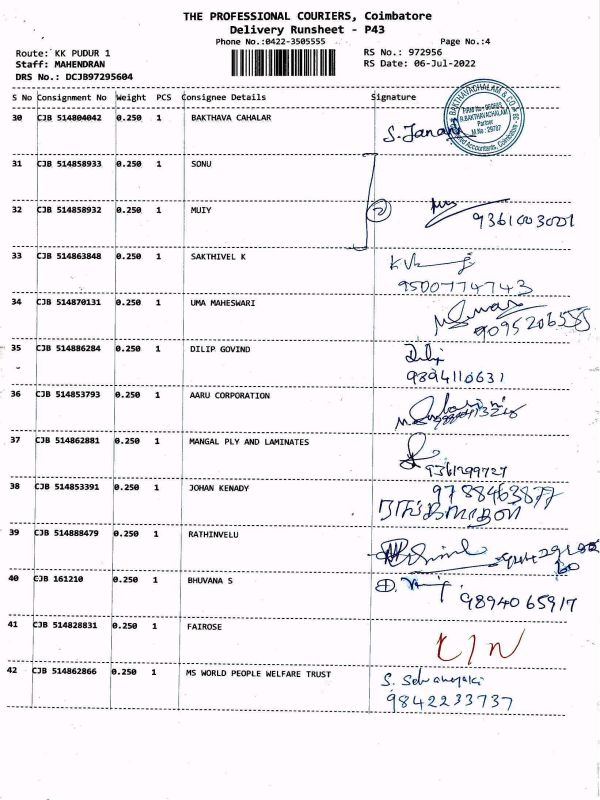 THE PROFESSIONAL COURIERS, Coimbatore
Delivery Runsheet - P43
Phone No.:0422-3505555 Page No.:4
Route: KK PUDUR 1 RS No.: 972956
Staff: MAHENDRAN RS Date: 06-Jul-2022
DRS No.: DCJB97295604
S No Consignment No Weight PCS Consignee Details Signature
30 CJB 514804042 0.250 1 BAKTHAVA CAHALAR S. Janani
BAKTHAVACHALAM & CO
R.BAKTHAVACHALAM
Partner
M.No : 29787
31 CJB 514858933 0.250 1 SONU
32 CJB 514858932 0.250 1 MUIY 2
9361003001
33 CJB 514863848 0.250 1 SAKTHIVEL K
9500774743
34 CJB 514870131 0.250 1 UMA MAHESWARI
35 CJB 514886284 0.250 1 DILIP GOVIND Dilip
9894110631
36 CJB 514853793 0.250 1 AARU CORPORATION
37 CJB 514862881 0.250 1 MANGAL PLY AND LAMINATES
9361299727
38 CJB 514853391 0.250 1 JOHAN KENADY 9788463877
39 CJB 514888479 0.250 1 RATHINVELU
40 CJB 161210 0.250 1 BHUVANA S
9894065917
41 CJB 514828831 0.250 1 FAIROSE
42 CJB 514862866 0.250 1 MS WORLD PEOPLE WELFARE TRUST
9842233737